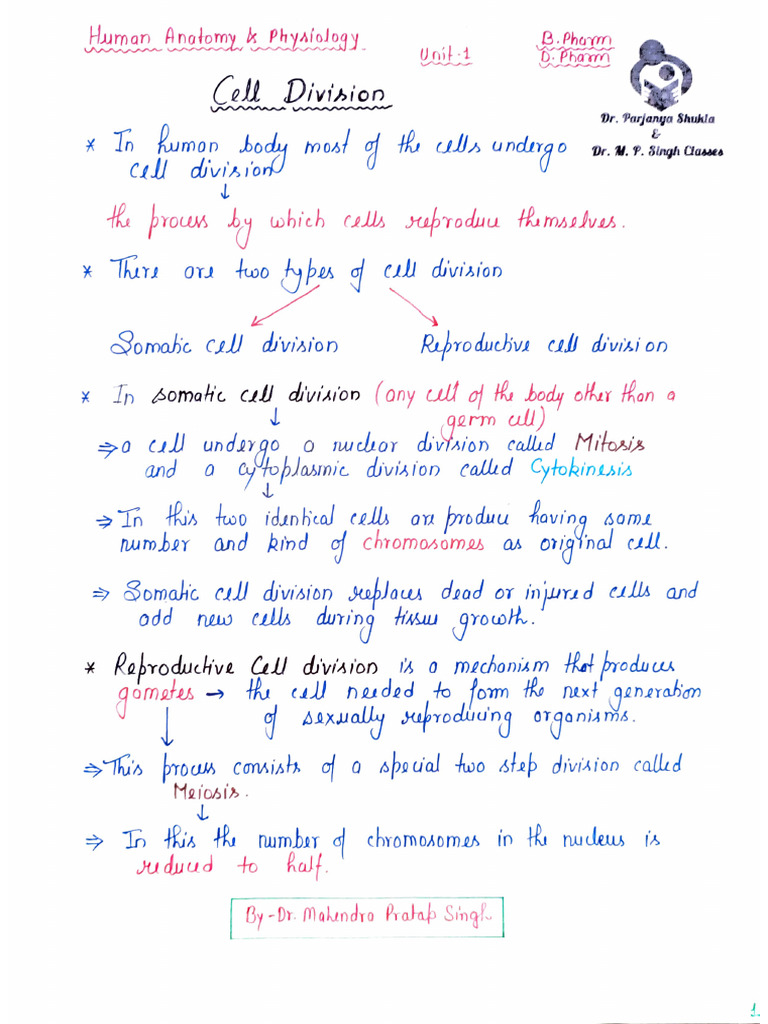 Human Anatomy & Physiology
Unit-1
B. Pharm
D. Pharm
Dr. Parjanya Shukla
&
Dr. M. P. Singh Classes
Cell Division
* In human body most of the cells undergo
cell division
↓
the process by which cells reproduce themselves.
* There are two types of cell division
Somatic cell division Reproductive cell division
* In somatic cell division (any cell of the body other than a
germ cell)
↓
⇒ a cell undergo a nuclear division called Mitosis
and a cytoplasmic division called Cytokinesis
↓
⇒ In this two identical cells are produce having same
number and kind of chromosomes as original cell.
⇒ Somatic cell division replaces dead or injured cells and
add new cells during tissue growth.
* Reproductive Cell division is a mechanism that produces
gametes → the cell needed to form the next generation
of sexually reproducing organisms.
↓
⇒ This process consists of a special two step division called
Meiosis.
↓
⇒ In this the number of chromosomes in the nucleus is
reduced to half.
By - Dr. Mahendra Pratap Singh
1.